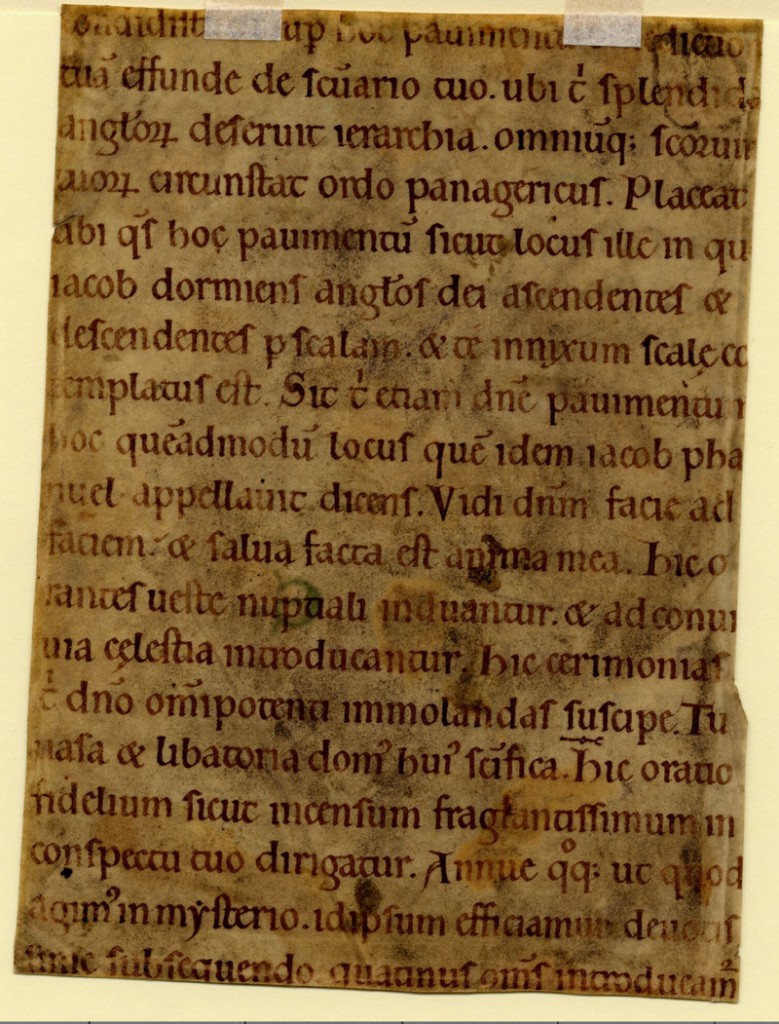 sup hoc pauimentū
tuā effunde de scūario tuo. ubi t̓ splendida
angl̄oꝝ deseruit ierarchia. omniūq; scōrum
tuoꝝ circunstat ordo panagericus. Placeat
tibi qs̄ hoc pauimentū sicut locus ille in quo
iacob dormiens angl̄os dei ascendentes &
descendentes ꝑ scalam. & te innixum scalę cō
templatus est. Sit t̓ etiam dn̄e pauimentū
hoc quēadmodū locus quē idem iacob pha
nuel appellauit dicens. Vidi dn̄m facie ad
faciem. & salua facta est anima mea. Hic o
rantes ueste nuptiali induantur. & ad conui
uia cęlestia introducantur. Hic cerimonias
t̓ dn̄o om̄ipotenti immolandas suscipe. Tu
uasa & libatoria domꝰ huiꝰ sc̄ifica. Hic oratio
fidelium sicut incensum fraglantissimum in
conspectu tuo dirigatur. Annue qͦq; ut quod
agimꝰ in mẏsterio. idipsum efficiamur deuotis
sime subsequendo quatinus om̄s introducam̄